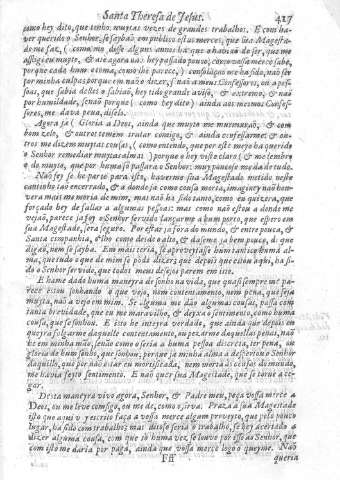 Santa Theresa de Jesus. 427
como hey dito, que tenho muytas vezes de grandes trabalhos. E com ha-
ver querido o Senhor, se saybão em publico estas merces, que sua Magesta-
de me faz, (como me disse alguns annos ha que o havia de ser, que me
affligi eu muyto, & ate agora não hey passado pouco, como vossa merce sabe,
porque cada hum o toma, como lhe parece) consolação me ha sido, não ser
por minha culpa; porque em não o dizer, senão a meus Confessores, ou a pes-
soas, que sabia delles o sabião, hey tido grande aviso, & extremo, & não
por humildade, senão porque (como hey dito) ainda aos mesmos Confes-
sores, me dava pena, dizelo.
Agora já (Gloria a Deos, ainda que muyto me murmurão, & com
bom zelo, & outros temem tratar comigo, & ainda confessarme, & ou-
tros me dizem muytas cousas, (como entendo, que por este meyo ha querido
o Senhor remediar muytas almas) porque o hey visto claro, (& me lembro
do muyto, que por huma só passara o Senhor, muy pouco se me dá de tudo.
Não sey se he parte para isto, haverme sua Magestade metido neste
cantinho tão encerrado, & a donde ja como cousa morta, imaginey não hou-
vera mais memoria de mim, mas não ha sido tanto, como eu quizera, que
forçado hey de fallar a algumas pessoas: mas como não estou a donde me
vejão, parece ja foy o Senhor servido lançarme a hum porto, que espero em
sua Magestade, será seguro. Por estar já fora do mundo, & entre pouca, &
Santa companhia, olho como desde o alto, & dáseme ja bem pouco, de que
digão, nem se sayba. Em mais teria, se aproveytasse hum tantico huma al-
ma, que tudo o que de mim se póde dizer; que depois que estou aqui, ha si-
do o Senhor servido, que todos meus desejos parem em isto.
E hame dado huma maneyra de sonho na vida, que quasi sempre me pa-
rece estou sonhando o que vejo, nem contentamento, nem pena, que seja
muyta, não a vejo em mim. Se alguma me dão algumas cousas, passa com
tanta brevidade, que eu me maravilho, & deyxa o sentimento, como huma
cousa, que se sonhou. E isto he inteyra verdade, que ainda que depois eu
queyra folgarme daquelle contentamento, ou pezarme daquellas penas, não
he em minha mão, senão como o seria a huma pessoa discreta, ter pena, ou
gloria de hum sonho, que sonhou; porque ja minha alma a despertou o Senhor
daquillo, que por não estar eu mortificada, nem morta ás cousas do mundo,
me havia feyto sentimento. E não quer sua Magestade, que se torne a ce-
gar.
Desta maneyra vivo agora, Senhor, & Padre meu, peça vossa merce a
Deos, ou me leve consigo, ou me dé, como o sirva. Praza a sua Magestade
isto que aqui vay escrito faça a vossa merce algum proveyto, que pelo pouco
lugar, ha sido com trabalho; mas ditoso seria o trabalho, se hey acertado a
dizer alguma cousa, com que só huma vez se louve por isso ao Senhor, que
com isto me daria por paga, ainda que vossa merce logo o queyme. Não
Fff queria